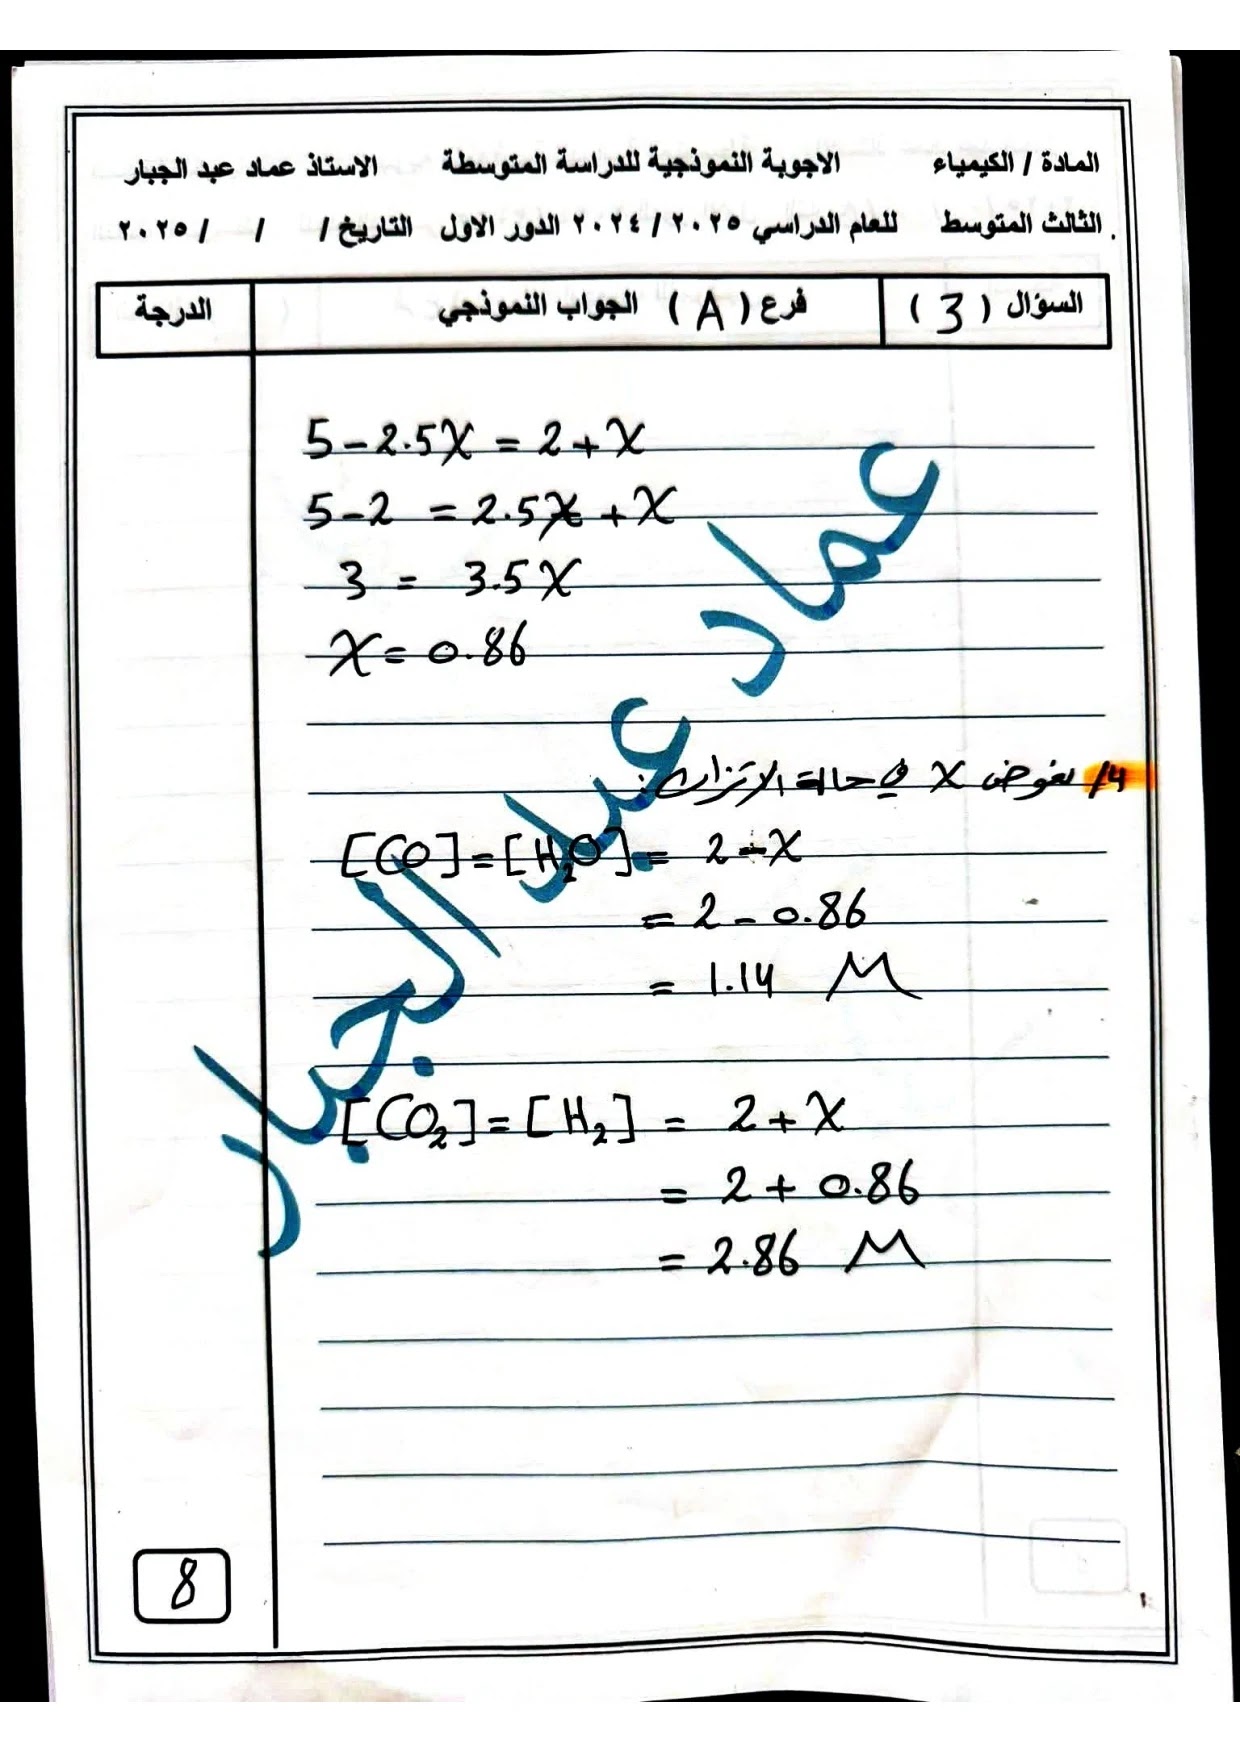 المادة / الكيمياء الاجوبة النموذجية للدراسة المتوسطة الاستاذ عماد عبد الجبار
الثالث المتوسط للعام الدراسي ٢٠٢٤/٢٠٢٥ الدور الاول التاريخ / / / ٢٠٢٥
السؤال (3) فرع (A) الجواب النموذجي الدرجة
5-2.5X = 2+X
5-2 = 2.5X +X
3 = 3.5X
X = 0.86
4/ نعوض X في حالة الاتزان:
[CO]=[H₂O] = 2-X
= 2 - 0.86
= 1.14 M
[CO₂]=[H₂] = 2+X
= 2 + 0.86
= 2.86 M
عماد عبد الجبار
8